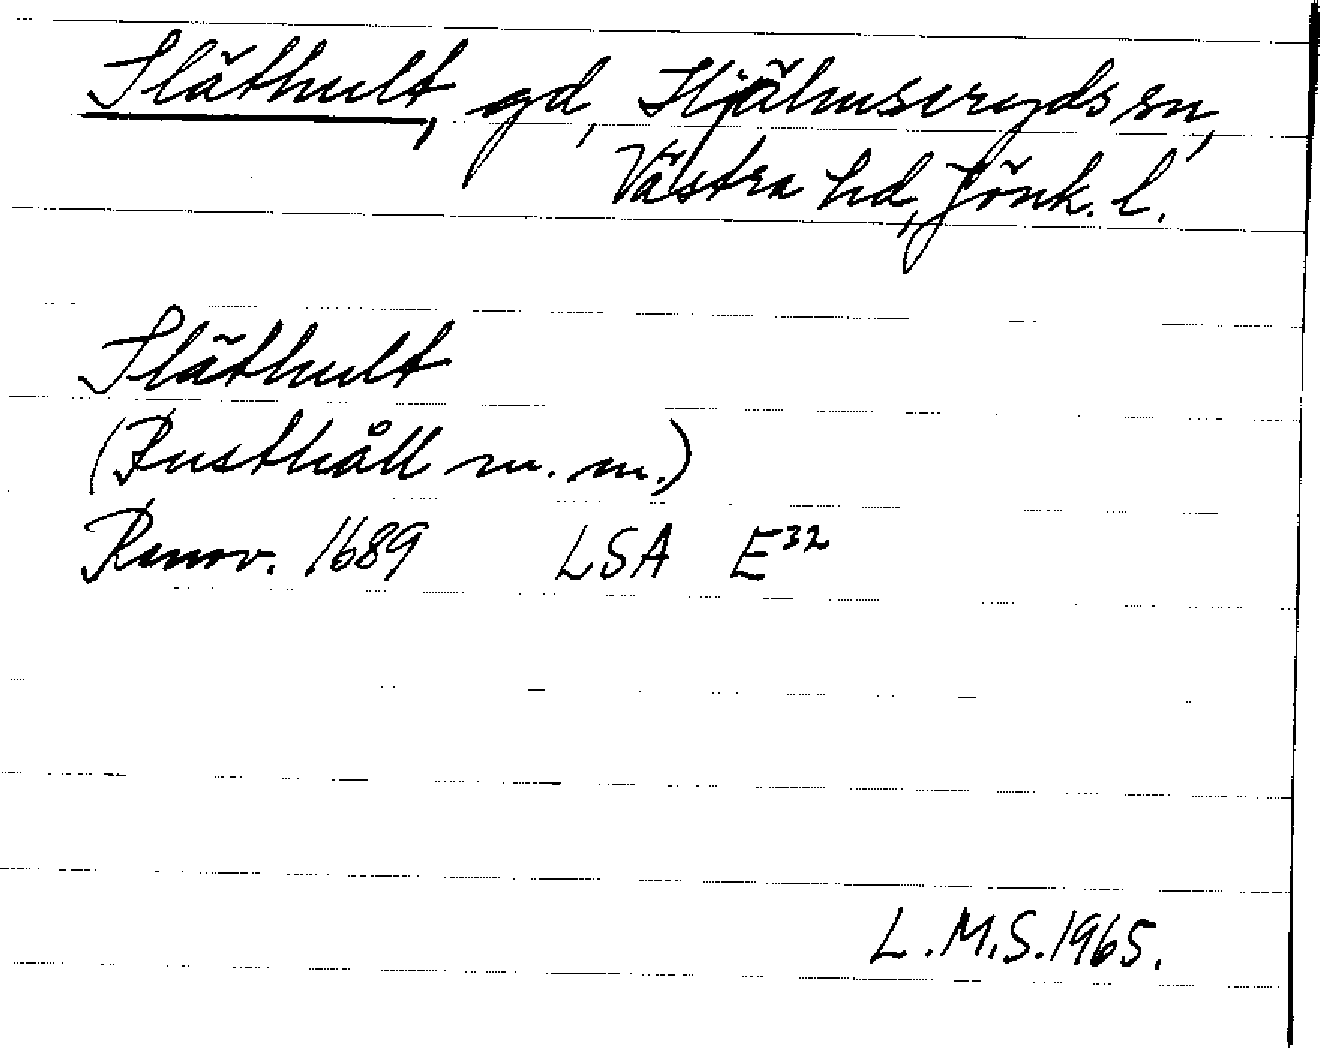 Släthult, gd, Hjälmseryds sn,
Västra hd, Jönk. l.
Släthult
(Rusthåll m. m.)
Renov. 1689 LSA E³²
L.M.S. 1965.